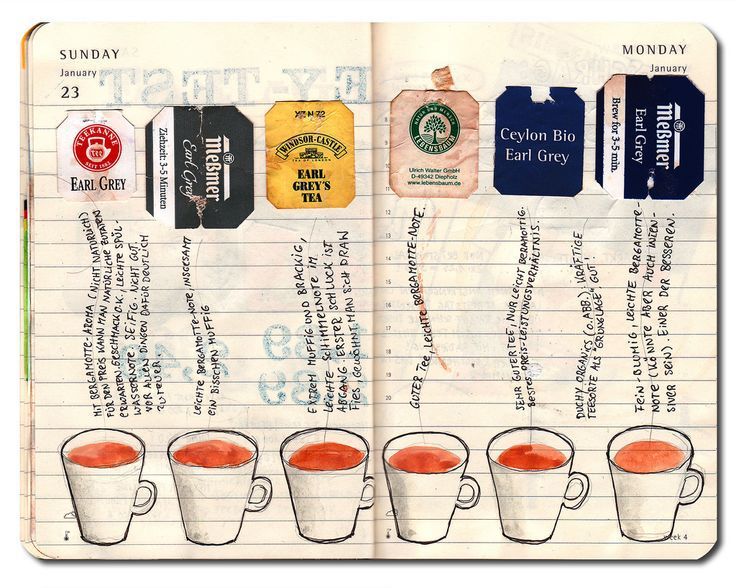 SUNDAY
January
23
MONDAY
January
TEEKANNE
SEIT 1882
EARL GREY
Meßmer
Earl Grey
Ziehzeit: 3-5 Minuten
WINDSOR-CASTLE
TEA OF LONDON
EARL
GREY'S
TEA
LEBENSBAUM
Ulrich Walter GmbH
D-49342 Diepholz
www.lebensbaum.de
Ceylon Bio
Earl Grey
Meßmer
Earl Grey
Brew for 3-5 min.
MIT BERGAMOTTE-AROMA (NICHT NATÜRLICH)
FÜR DEN PREIS KANN MAN NATÜRLICHE ZUTATEN
ERWARTEN. GESCHMACK O.K. LEICHTE SPÜL-
WASSERNOTE. SEIFIG. NICHT GUT.
VOR ALLEN DINGEN DAFÜR DEUTLICH
ZU TEUER.
LEICHTE BERGAMOTTE-NOTE INSGESAMT
EIN BISSCHEN MUFFIG
EXTREM MUFFIG UND BRACKIG,
LEICHTE SCHIMMELNOTE IM
ABGANG. ERSTER SCHLUCK IST
FIES, GEWÖHNT MAN SICH DRAN
GUTER TEE, LEICHTE BERGAMOTTE-NOTE.
SEHR GUTER TEE, NUR LEICHT BERAMOTTIG.
BESTES PREIS-LEISTUNGSVERHÄLTNIS.
DUCHY ORGANICS (O. ABB.) KRÄFTIGE
TEESORTE ALS GRUNDLAGE. GUT!
FEIN-BLUMIG, LEICHTE BERGAMOTTE-
NOTE (KÖNNTE ABER AUCH INTEN-
SIVER SEIN). EINER DER BESSEREN.
week 4